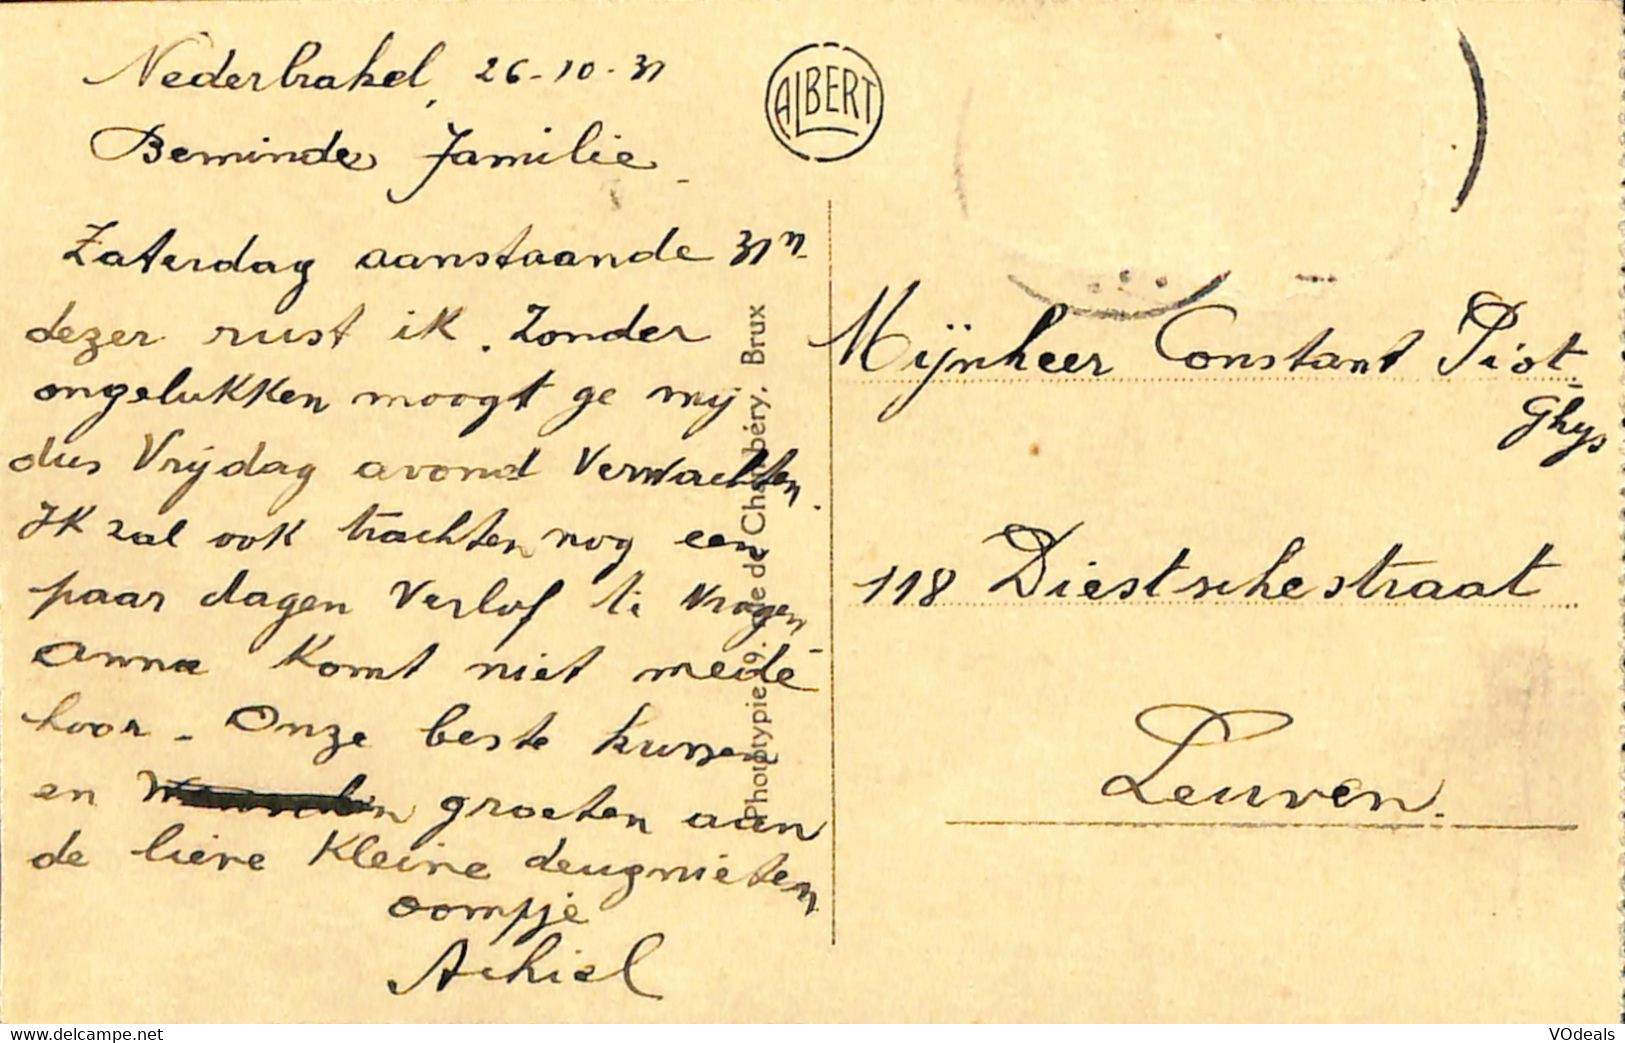 Nederbrakel, 26-10-31
Beminde Familie
Zaterdag aanstaande 31n
dezer rust ik. Zonder
ongelukken moogt ge mij
dus Vrijdag avond verwachten.
Ik zal ook trachten nog een
paar dagen verlof te vragen
Anna komt niet mede
hoor - Onze beste kussen
en groeten aan
de lieve kleine deugnieten
oompje
Achiel
ALBERT
Phototypie 9. de Chambéry. Brux
Mijnheer Constant Piot-
Ghys
118 Diestschestraat
Leuven.
www.delcampe.net
VOdeals